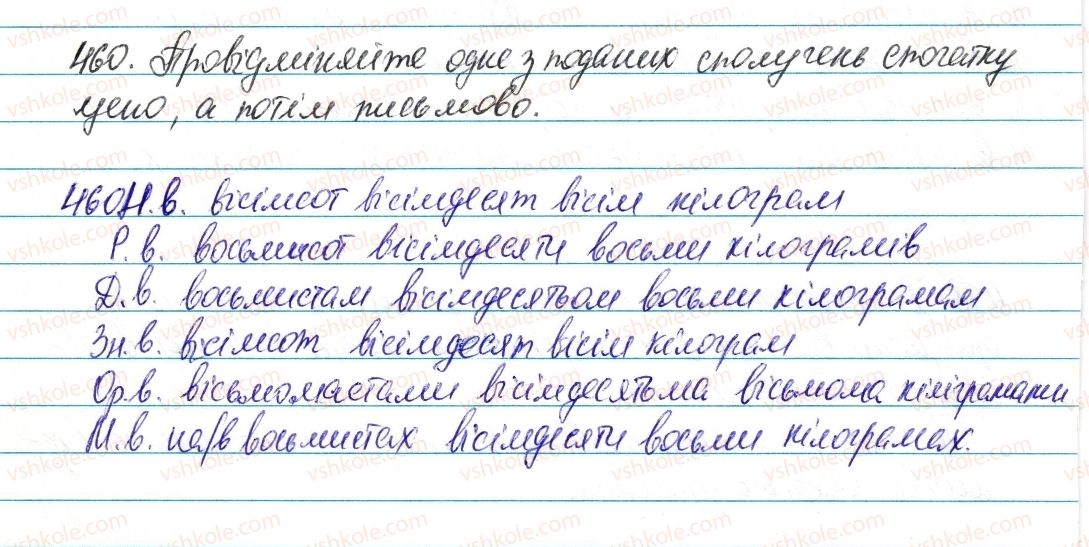 460. Провідміняйте одне з поданих сполучень спочатку
усно, а потім письмово.
460 Н.в. вісімсот вісімдесят вісім кілограм
Р.в. восьмисот вісімдесяти восьми кілограмів
Д.в. восьмистам вісімдесятьом восьми кілограмам
Зн.в. вісімсот вісімдесят вісім кілограм
Ор.в. вісімдесятьма вісьмома
М.в. на/в восьмистах вісімдесяти восьми кілограмах.